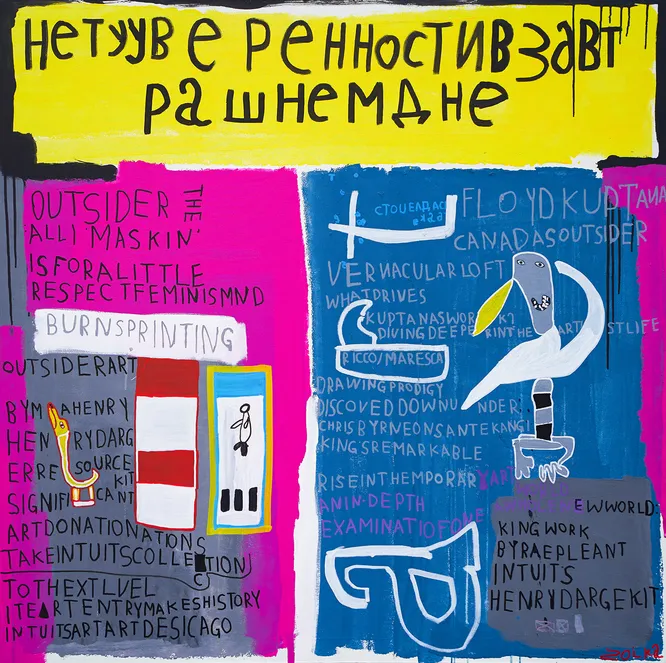 НЕТУУВЕРЕННОСТИВЗАВТ
РАШНЕМДНЕ
OUTSIDER THE
ALLI'MASKIN'
ISFORALITTLE
RESPECTFEMINISMND
BURNSPRINTING
OUTSIDERART
BYM AHENRY
HEN RYDARG
ERRE SOURCE
KIT
SIGNIFI CANT
ARTDONATIONATIONS
TAKEINTUITSCOLLECTION
TOTHEXTLVEL
ITEARTENTRYMAKESHISTORY
INTUITSARTARTDESICAGO
FLOYDKUDTANA
CANADASOUTSIDER
VERNACULARLOFT
WHATDRIVES
KUPTANASWORK?
DIVINGDEEPERINTHEARTISTLIFE
RICCO/MARESCA
DRAWINGPRODIGY
DISCOVEDDOWNU NDER:
CHRISBYRNEONSANTEKANGI
KING'SREMARKABLE
RISEINTHEMPORARYART
ANIN-DEPTH
EXAMINATIOFONE
EWWORLD:
KINGWORK
BYRAEPLEANT
INTUITS
HENRYDARGEKIT